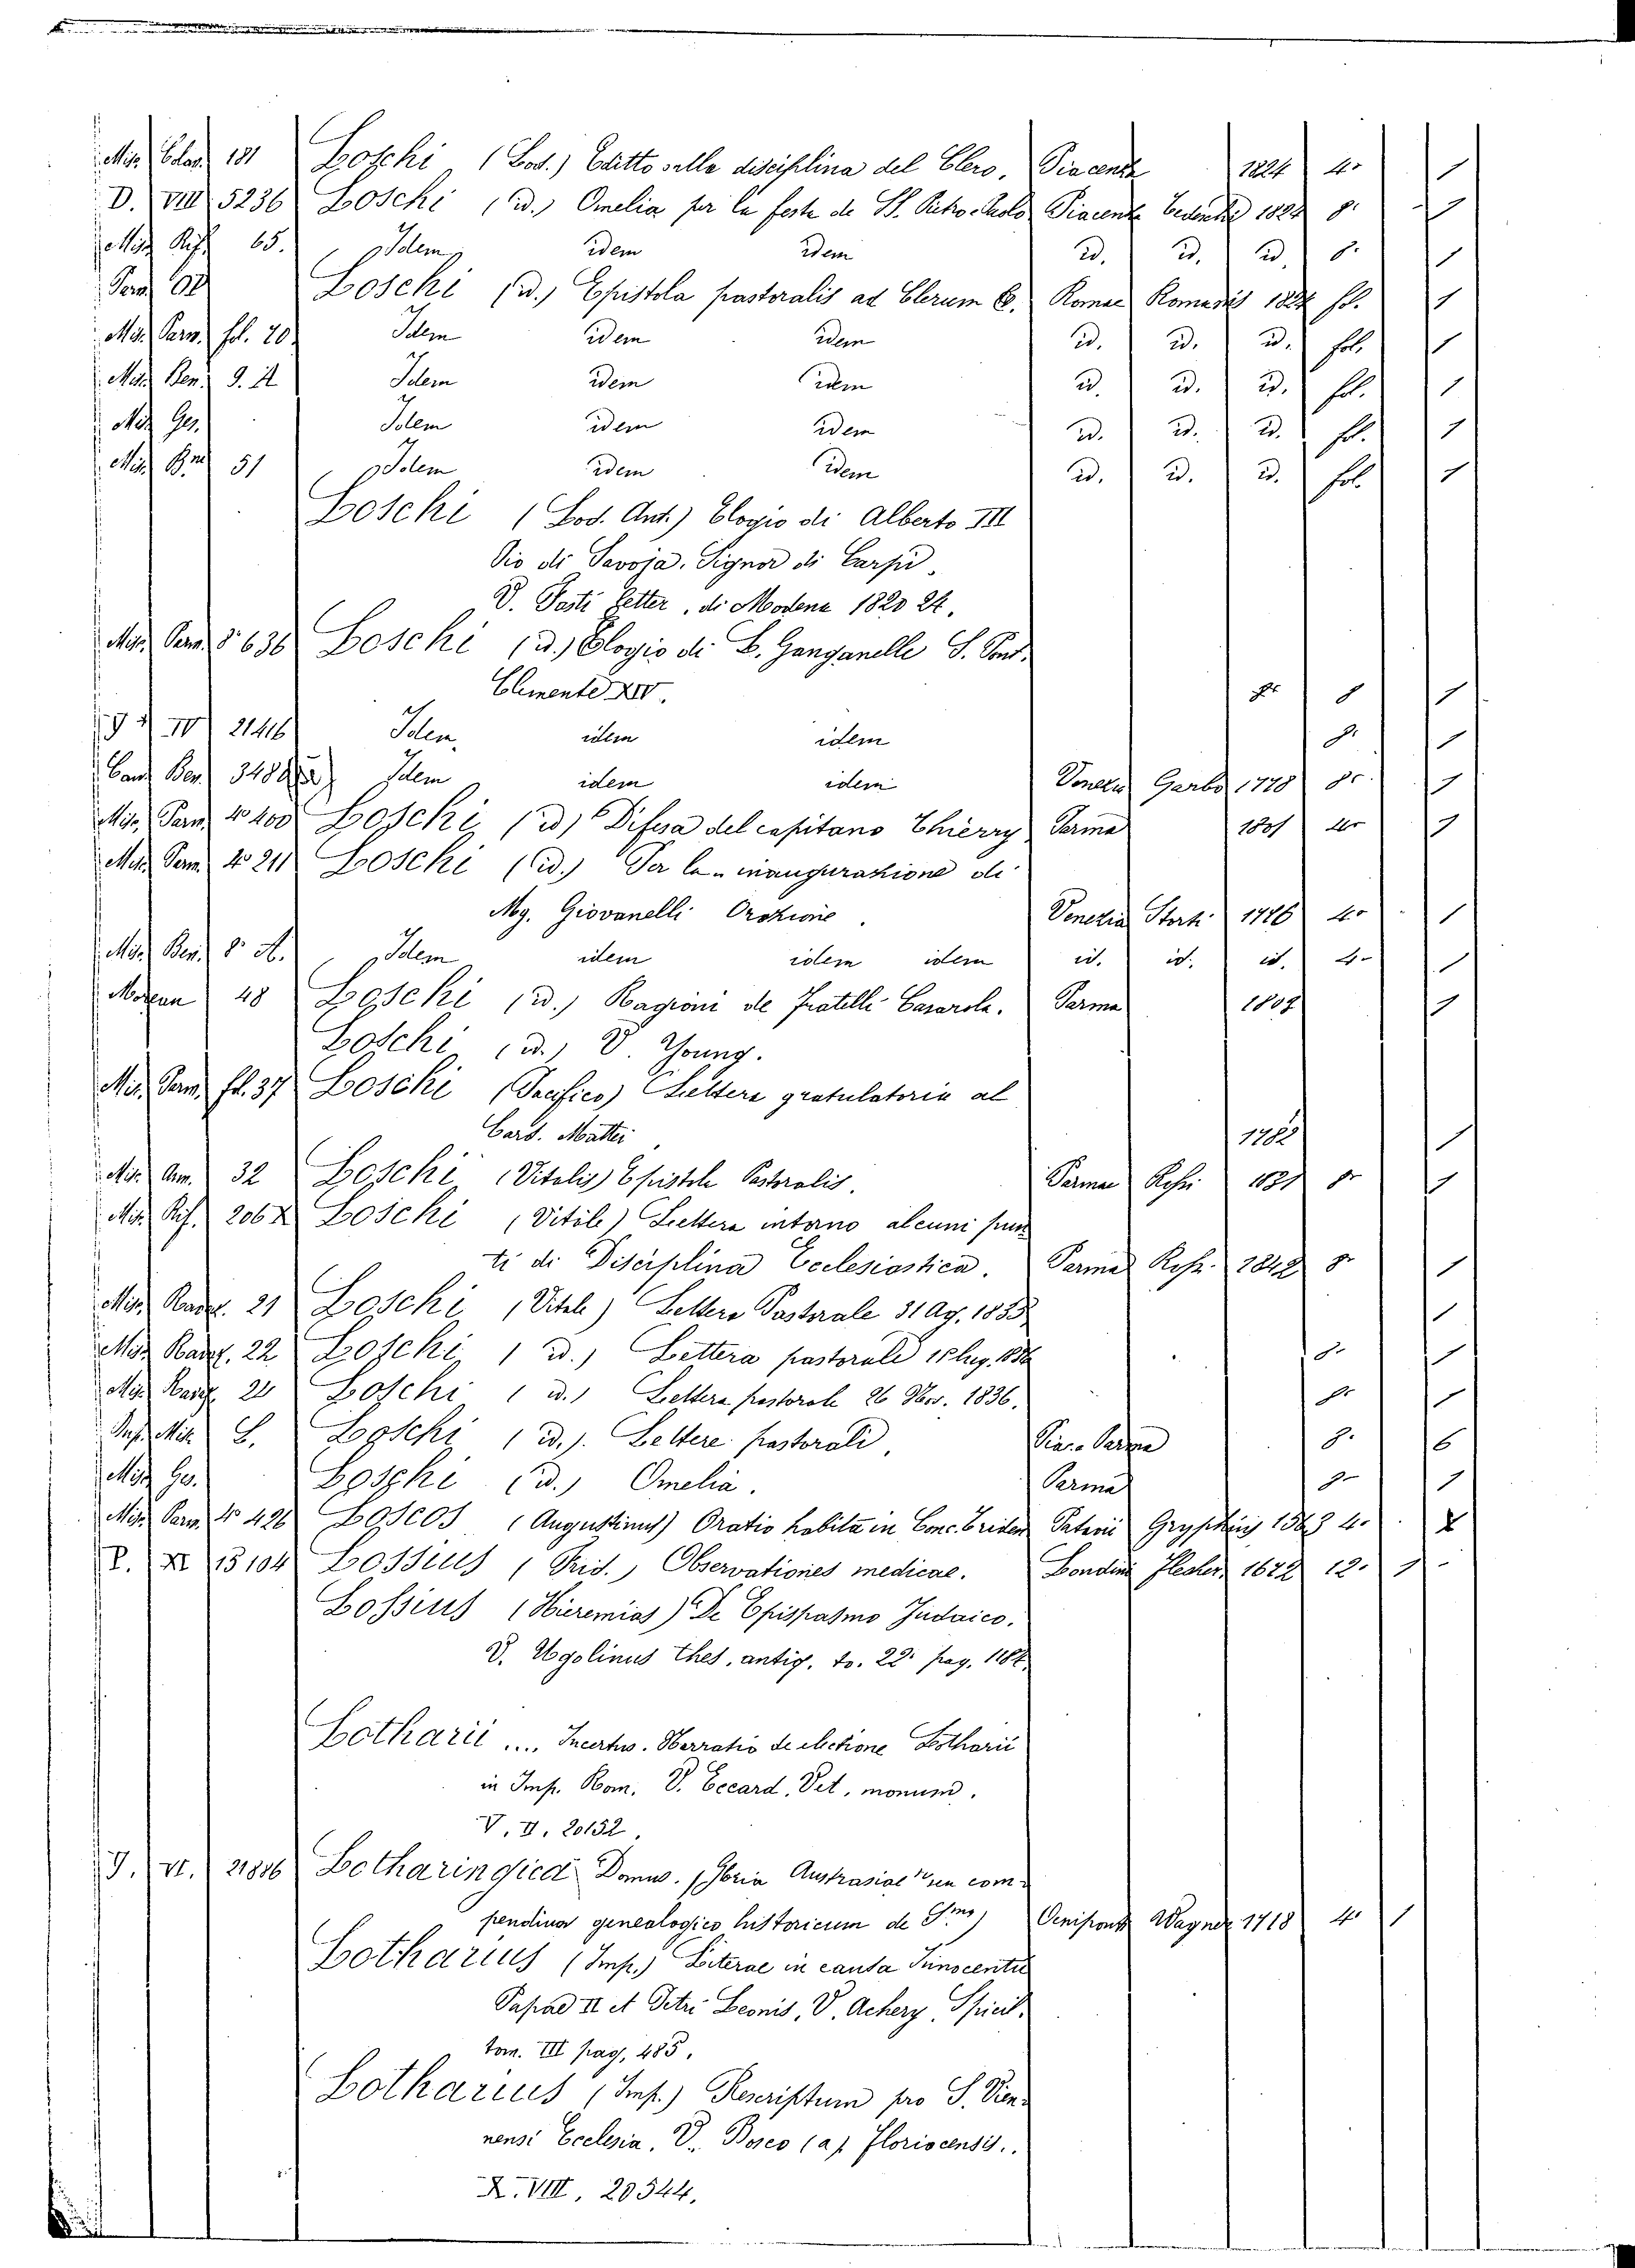 Mis. Edoc. 181 Loschi (Lod.) Editto sulla disciplina del Clero. Piacenza 1824 4° 1
D. VIII 5236 Loschi (id.) Omelia per la festa de SS. Pietro e Paolo Piacenza 1824 8° 1
Mis. Rif. 65. Idem idem idem id. id. id. 8° 1
Loschi (id.) Epistola pastoralis ad Clerum &. Romae Romanis 1824 fol. 1
Mis. Parm. fol. 20. Idem idem idem id. id. id. fol. 1
Mis. Ben. 9. Idem idem idem id. id. id. fol. 1
Mis. Ges. Idem idem idem id. id. id. fol. 1
Mis. 51 Idem idem idem id. id. id. fol. 1
Loschi (Lod. Ant.) Elogio di Alberto III
Pio di Savoja, Signor di Carpi.
V. Posti letter. di Modena 1820 24.
Mis. Parm. 8° 636 Loschi (id.) Elogio di L. Ganganelle S. Pont.
Clemente XIV. 8° 1
IV 21416 Idem idem idem 8° 1
Ben. Idem idem idem Venezia Garbo 1778 8° 1
Mis. Parm. 4° 400 Loschi (id) Difesa del capitano Thierry Parma 1801 4° 1
Mis. Parm. 4° 211 Loschi (id.) Per la inaugurazione di
Mg. Giovanelli Orazione. Venezia Storti 1776 4° 1
Mis. Ben. 8° A. Idem idem idem idem id. id. id. 4° 1
Moreau 48 Loschi (id.) Ragioni de Fratelli Casarola. Parma 1807 1
Loschi (id.) V. Young.
Mis. Parm. fol. 37 Loschi (Pacifico) Lettera gratulatoria al
Card. Mattei 1782 1
Mis. Am. 32 Loschi (Vitalis) Epistola Pastoralis. Parmae 1831 8° 1
Mis. Rif. 206 Loschi (Vitale) Lettera intorno alcuni pun
ti di Disciplina Ecclesiastica. Parma 1842 8° 1
Mis. 21 Loschi (Vitale) Lettera Pastorale 31 Ag. 1833 1
Mis. 22 Loschi (id.) Lettera pastorale 15 lug. 1836 8° 1
Mis. Loschi (id.) Lettera pastorale 26 Nov. 1836. 8° 1
Mis. L. Loschi (id.). Lettere pastorali. Piac. e Parma 8° 6
Mis. Ges. Loschi (id.) Omelia. Parma 8° 1
Mis. Parm. 4° 426 Loscos (Augustinus) Oratio habita in Conc. Triden Patavii Gryphius 1563 4°
P. XI 15104 Lossius (Frid.) Observationes medicae. Londini Flesher, 1672 12° 1
Lossius (Hieremias) De Epispasmo Judaico.
V. Ugolinus Thes. antiq. to. 22° pag. 1184.
Lotharii .... Incertus. Narratio de electione Lotharii
in Imp. Rom. V. Eccard. Vet. monum.
V. II. 20152.
J. VI. 21886 Lotharingica Domus. (Gloria Austrasiae seu com-
pendium genealogico historicum de Dmo) Oeniponti Wagner 1718 4° 1
Lotharius (Imp.) Literae in causa Innocentii
Papae II et Petri Leonis, V. Achery Spicil.
tom. III pag. 485.
Lotharius (Imp.) Rescriptum pro S. Vien-
nensi Ecclesia. V. Bosco (a) Floriacensis.
X. VIII. 20544.